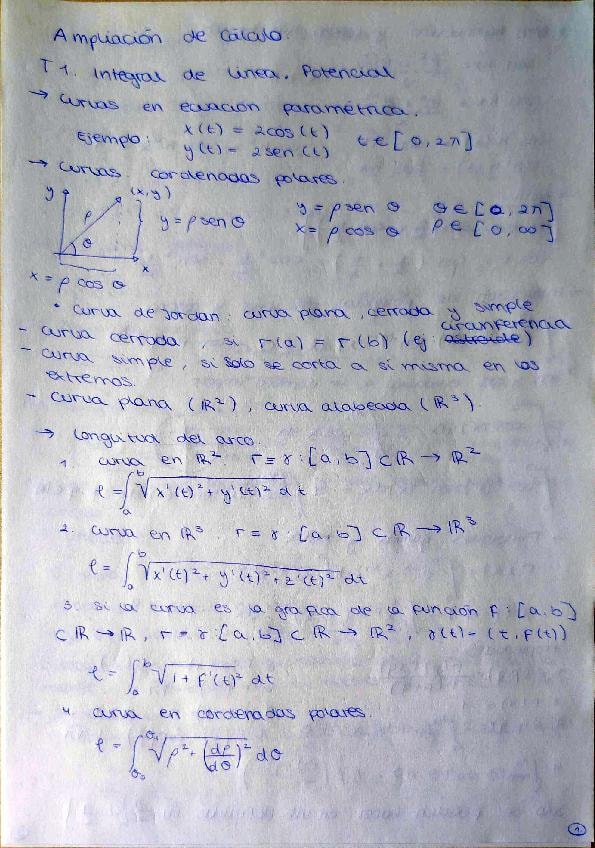 Ampliación de Cálculo.
T1. Integral de línea. Potencial
→ curvas en ecuación paramétrica.
Ejemplo: x(t) = 2cos(t)
y(t) = 2sen(t) t ∈ [0, 2π]
→ curvas. cordenadas polares.
y (x,y)
ρ y = ρ sen θ y = ρ sen θ θ ∈ [0, 2π]
θ x = ρ cos θ ρ ∈ [0, ∞]
x
x = ρ cos θ
• curva de Jordan: curva plana, cerrada y simple
circunferencia
- curva cerrada, si r(a) = r(b) (ej: astroide)
- curva simple, si solo se corta a si misma en los
extremos.
- curva plana (ℝ²), curva alabeada (ℝ³).
→ longuitud del arco.
1. curva en ℝ². r = γ: [a, b] ⊂ ℝ → ℝ²
ℓ = ∫ₐᵇ √(x'(t)² + y'(t)²) dt
2. curva en ℝ³. r = γ: [a, b] ⊂ ℝ → ℝ³
ℓ = ∫ₐᵇ √(x'(t)² + y'(t)² + z'(t)²) dt
3. si la curva es la grafica de la función f: [a, b]
⊂ ℝ → ℝ, r = γ: [a, b] ⊂ ℝ → ℝ², γ(t) = (t, f(t))
ℓ = ∫ₐᵇ √(1 + f'(t)²) dt
4. curva en cordenadas polares.
ℓ = ∫_θ₀^θ₁ √(ρ² + (dρ/dθ)²) dθ
1